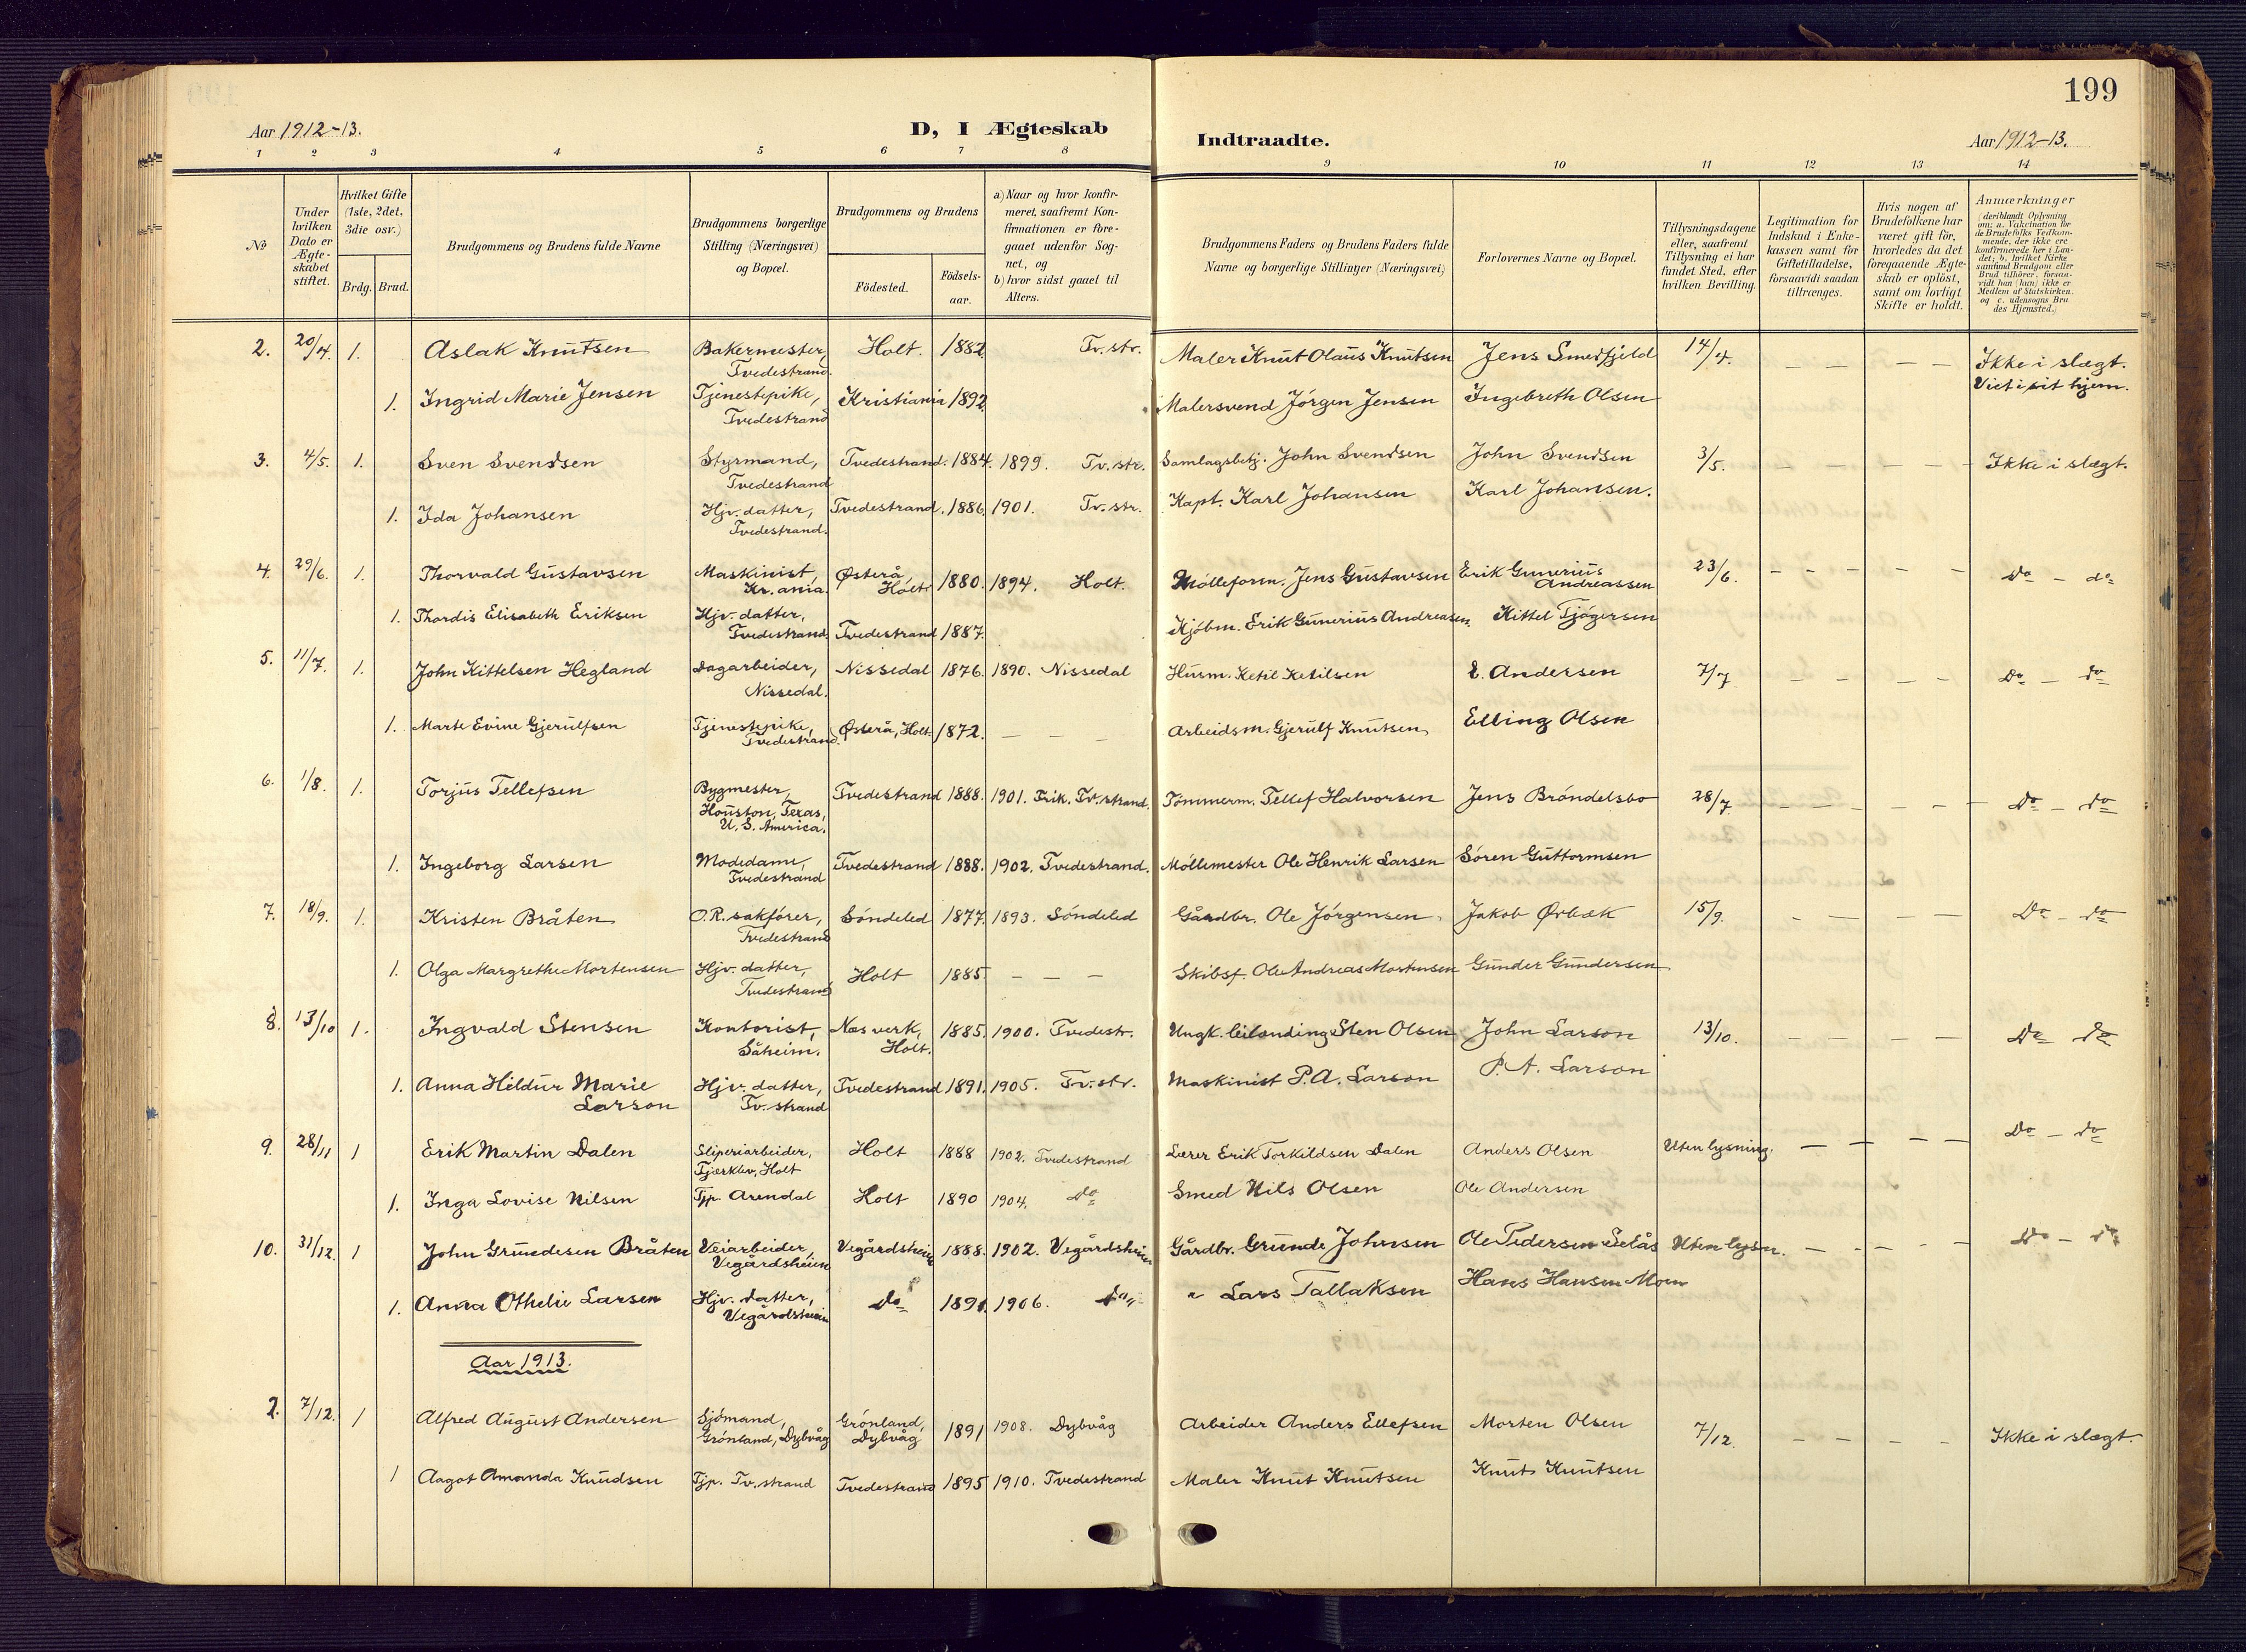 199
Aar 1912-13. D, I Ægteskab Indtraadte. Aar 1912-13.
1 2 3 4 5 6 7 8 9 10 11 12 13 14
No
Under hvilken Dato er Ægteskabet stiftet.
Hvilket Gifte (1ste, 2det, 3die osv.)
Brdg. Brud.
Brudgommens og Brudens fulde Navne
Brudgommens borgerlige Stilling (Næringsvei) og Bopæl.
Brudgommens og Brudens
Födested. Födselsaar.
a) Naar og hvor konfirmeret, saafremt Konfirmationen er foregaaet udenfor Sognet, og
b) hvor sidst gaaet til Alters.
Brudgommens Faders og Brudens Faders fulde Navne og borgerlige Stillinger (Næringsvei)
Forlovernes Navne og Bopæl.
Tillysningsdagene eller, saafremt Tillysning ei har fundet Sted, efter hvilken Bevilling.
Legitimation for Indskud i Enkekassen samt for Giftetilladelse, forsaavidt saadan tiltrænges.
Hvis nogen af Brudefolkene har været gift før, hvorledes da det foregaaende Ægteskab er oplöst, samt om lovligt Skifte er holdt.
Anmærkninger (deriblandt Oplysning om: a. Vakcination for de Brudefolks Vedkommende, der ikke ere konfirmerede her i Landet; b. hvilket Kirkesamfund Brudgom eller Brud tilhörer, forsaavidt han (hun) ikke er Medlem af Statskirken. og c. udensogns Brudes Hjemsted.)
2. 20/4. 1. Aslak Knutsen Bakermester, Tvedestrand. Holt. 1882. Tv. str. Maler Knut Olaus Knutsen Jens Smedfjeld 14/4. — — — — Ikke i slægt. Viet i sit hjem.
1. Ingrid Marie Jensen Tjenestepike, Tvedestrand Kristiania 1892. Malersvend Jörgen Jensen Ingebreth Olsen
3. 4/5. 1. Sven Svendsen Styrmand, Tvedestrand Tvedestrand. 1884. 1899. Tv. str. Samlagsbetj. John Svendsen John Svendsen 3/5. — — — — Ikke i slægt.
1. Ida Johansen Hjv. datter, Tvedestrand. Tvedestrand. 1886. 1901. Tv. str. Kapt. Karl Johansen Karl Johansen.
4. 29/6. 1. Thorvald Gustavsen Maskinist, Kr.ania. Østerå, Holt 1880. 1894. Holt. Mölleform. Jens Gustavsen Erik Gunerius Andreassen 23/6. — — — — — do — do
1. Thordis Elisabeth Eriksen Hjv. datter, Tvedestrand. Tvedestrand 1887. Kjöbm. Erik Gunerius Andreasen. Kittel Tjögersen
5. 11/7. 1. John Kittelsen Hegland Dagarbeider, Nissedal. Nissedal 1876. 1890. Nissedal Husm. Ketil Ketilsen E. Andersen 7/7 — — — — Do — do
1. Marte Evine Gjerulfsen Tjenestepike, Tvedestrand. Østerå, Holt. 1872. — — — Arbeidsm. Gjerulf Knutsen, Elling Olsen
6. 1/8. 1. Torjus Tellefsen Bygmester, Houston, Texas, U. S. America. Tvedestrand 1888. 1901. Frik. Tv. strand. Tömmerm. Tellef Halvorsen Jens Bröndelsbo 28/7. — — — — — Do — do
1. Ingeborg Larsen Modedame, Tvedestrand Tvedestrand 1888. 1902. Tvedestrand. Möllemester Ole Henrik Larsen Sören Guttormsen
7. 18/9. 1. Kristen Bråten O.R. sakförer, Tvedestrand Söndeled 1877. 1893. Söndeled Gårdbr. Ole Jörgensen. Jakob Ørbæk 15/9. — — — — Do — do
1. Olga Margrethe Mortensen Hjv. datter, Tvedestrand Holt 1885. — — — Skibsf. Ole Andreas Mortensen Gunder Gundersen
8. 13/10 1. Ingvald Stensen Kontorist, Såheim. Næs verk, Holt. 1885. 1900. Tvedestr. Ungk. Sten Olsen John Larson 13/10. — — — — Do do
1. Anna Hildur Marie Larson Hjv. datter, Tv. strand Tvedestrand 1891. 1905. Tv. str. Maskinist P. A. Larson P. A. Larson
9. 28/11 1 Erik Martin Dalen Sliperiarbeider, Tjærkløv, Holt Holt 1888 1902. Tvedestrand Lærer Erik Torkildsen Dalen Anders Olsen Uten lysning. — — — — Do — do
1. Inga Lovise Nilsen Tjp. Arendal Holt 1890 1904. Do Smed Nils Olsen Ole Andersen
10. 31/12. 1 John Grundesen Bråten Veiarbeider, Vegårdsheien Vegårdsheien 1888. 1902. Vegårdsheien Gårdbr. Grunde Johnsen Ole Pedersen Selås Uten lysn. — — — — Do — do
1. Anna Othelie Larsen Hjv. datter, Vegårdsheien Do 1891. 1906. Do „ Lars Tallaksen Hans Hansen Moen
Aar 1913.
2. 7/12. 1 Alfred August Andersen Sjömand, Grönland, Dybvåg Grönland, Dybvåg 1891 1908. Dybvåg Arbeider Anders Ellefsen Morten Olsen 7/12. — — — — Ikke i slægt.
1 Aagot Amanda Knudsen Tjp. Tv. strand Tvedestrand 1895 1910. Tvedestrand Maler Knut Knutsen Knut Knutsen